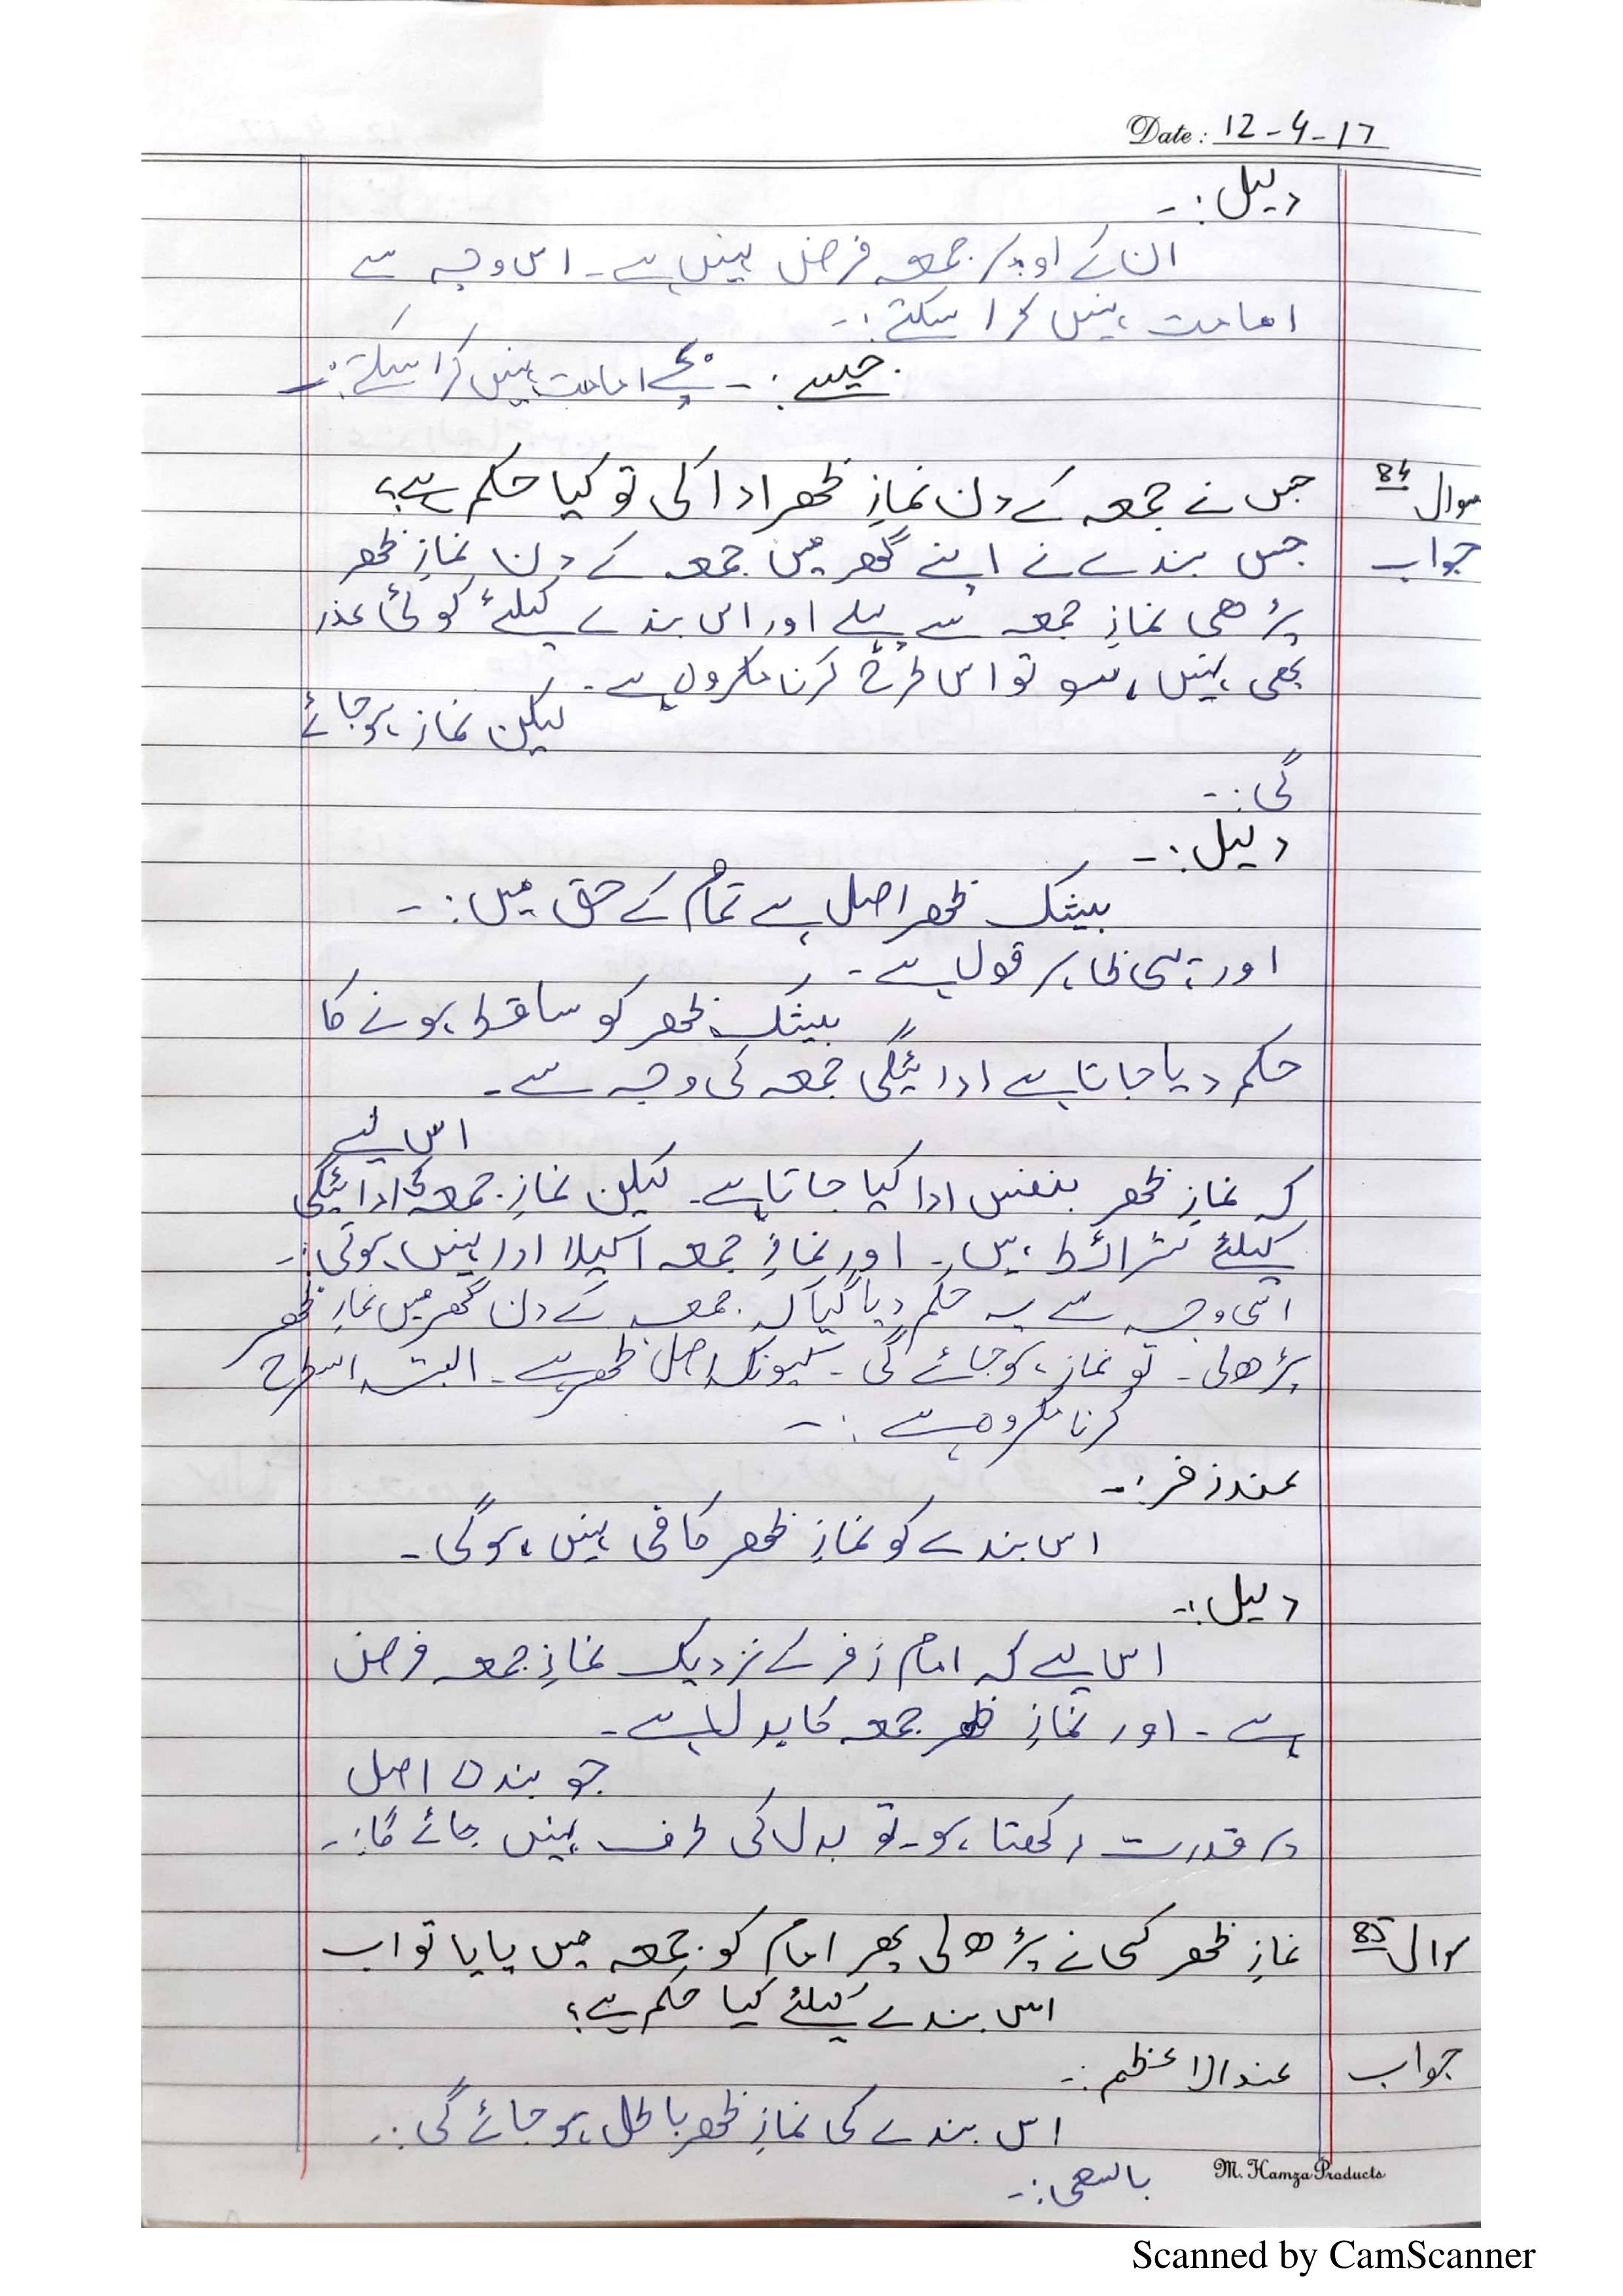 Date: 12-4-17
دلیل:-
ان کے اوپر جمعہ فرض نہیں ہے۔ اس وجہ سے
امامت نہیں کرا سکتے:-
جیسے:- بچے امامت نہیں کرا سکتے:-
سوال 84 جس نے جمعہ کے دن نمازِ ظھر ادا کی تو کیا حکم ہے؟
جواب جس بندے نے اپنے گھر میں جمعہ کے دن نمازِ ظھر
پڑھی نمازِ جمعہ سے پہلے اور اس بندے کیلئے کوئی عذر
بھی نہیں ہو تو اس طرح کرنا مکروہ ہے۔
لیکن نماز ہوجائے
گی:-
دلیل:-
بیشک ظھر اصل ہے تمام کے حق میں:-
اور یہی ظاہر قول ہے۔
بیشک ظھر کو ساقط ہونے کا
حکم دیا جاتا ہے ادائیگی جمعہ کی وجہ سے۔
اس لیے
کہ نمازِ ظھر بنفس ادا کیا جاتا ہے۔ لیکن نمازِ جمعہ کی ادائیگی
کیلئے شرائط ہیں۔ اور نمازِ جمعہ اکیلا ادا نہیں ہوتی:-
اسی وجہ سے یہ حکم دیا گیا کہ جمعہ کے دن گھر میں نمازِ ظھر
پڑھ لی۔ تو نماز ہوجائے گی۔ کیونکہ اصل ظھر ہے۔ البتہ اسطرح
کرنا مکروہ ہے:-
عند زفر:-
اس بندے کو نمازِ ظھر کافی نہیں ہوگی۔
دلیل:-
اس لیے کہ امام زفر کے نزدیک نمازِ جمعہ فرض
ہے۔ اور نمازِ ظھر جمعہ کا بدل ہے۔
جو بندہ اصل
پر قدرت رکھتا ہو۔ تو بدل کی طرف نہیں جائے گا:-
سوال 85 نمازِ ظھر کسی نے پڑھ لی پھر امام کو جمعہ میں پایا تو اب
اس بندے کیلئے کیا حکم ہے؟
جواب عندالاعظم:-
اس بندے کی نمازِ ظھر باطل ہوجائے گی:-
بالسعی:-
M. Hamza Products
Scanned by CamScanner